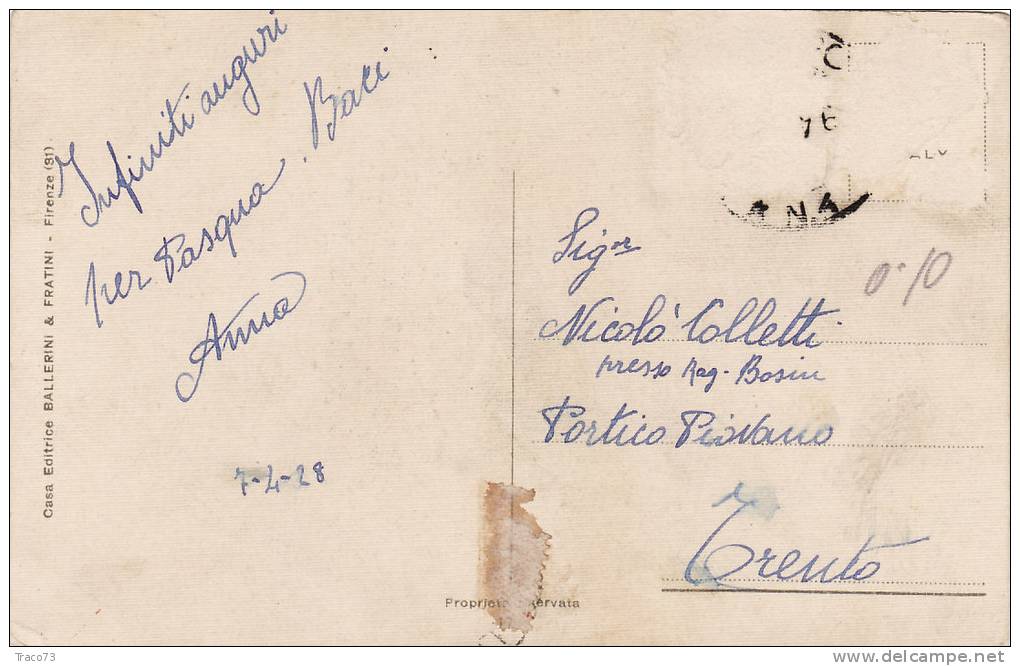 Infiniti auguri
per Pasqua. Baci
Anna
7-4-28
Casa Editrice BALLERINI & FRATINI - Firenze (31)
Sig.re
Nicolò Colletti
presso Rag. Bosin
Portico Piovano
Trento
0.10
Proprietà ervata
Traco73
www.delcampe.net